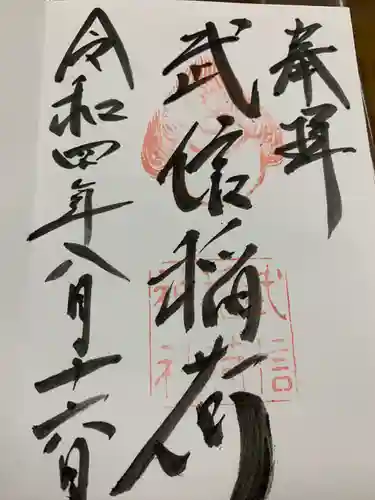 奉拝
武信稲荷
令和四年八月十六日
武信稲荷神社